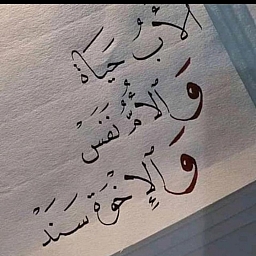 الأبُ حَيَاة
وَالأُمُّ نَفَسْ
وَالإِخْوَة سَنَدْ